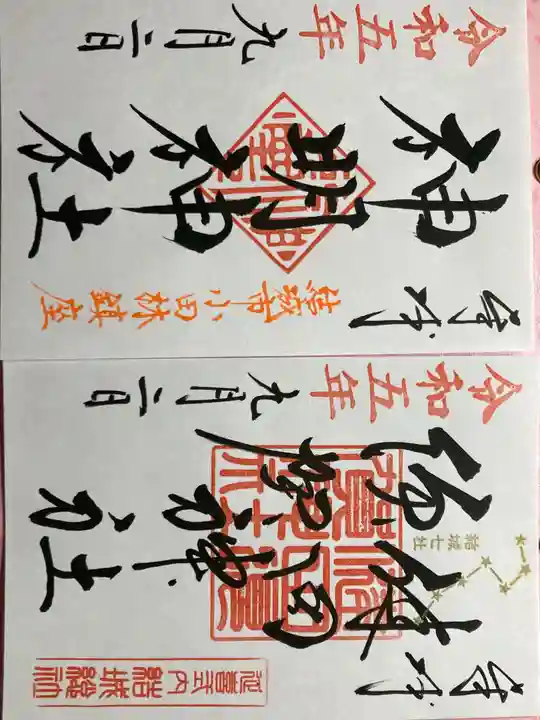 奉拝
神明神社
令和五年
九月二日
結城市小田林鎮座
奉拝
健田
須賀
神社
令和五年
九月二日
結城七社
延喜式内結城總社